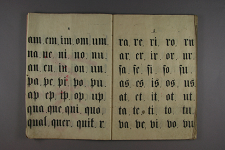 am em im om um.
na ne ni no nu.
an en in on un.
pa pe pi po pu.
ap ep ip op up.
qua que qui quo.
qual. quer. quit. r.
ra re ri ro ru
ar er ir or ur
sa se si so su.
as es is os us
at et it ot ut
ta te ti to tu
va ve vi vo vu